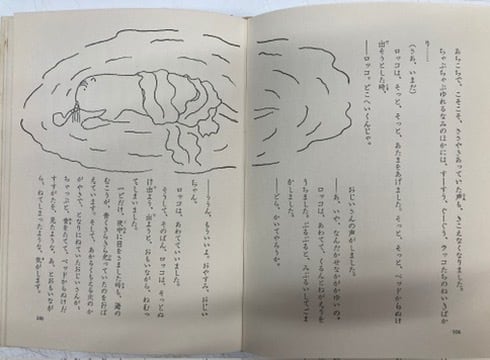 あちこちで、こそこそ、ささやきあっていた声も、きこえなくなりました。
ちゃぷちゃぷゆれるなみのほかには、すーすう、ぐーぐうラッコたちのねいきばか
り——
(さあ、いまだ)
ロッコは、そっと、そっと、あたまをあげました。そっと、そっと、ベッドからぬけ
出そうとした時、
——ロッコ。どこへいくんじゃ。
おじいさんの声がしました。
——あ、いや、なんだかせなかがかゆいの。
ロッコは、あわてて、くるんとねがえりを
うちました。ぶるぶると、みぶるいしてごま
かしました。
——どら、かいてやろうか。
106
——ううん、もういいよ。おやすみ、おじい
ちゃん。
ロッコは、あわてていいました。
そうして、そのばん、ロッコは、そっとぬ
け出よう、出ようと、おもいながら、ねむっ
てしまいました。
一どだけ、夜中に目をさました時も、海の
むこうが、青くきらきら光っていたのをおぼ
えています。そして、あかるくもえる火のか
がやきで、となりにねていたおじいさんが、
ちゃっぷと、音をたてて、ベッドからぬけだ
すすがたを、見たような、あ、とおもいなが
ら、ねてしまったような、気がします。